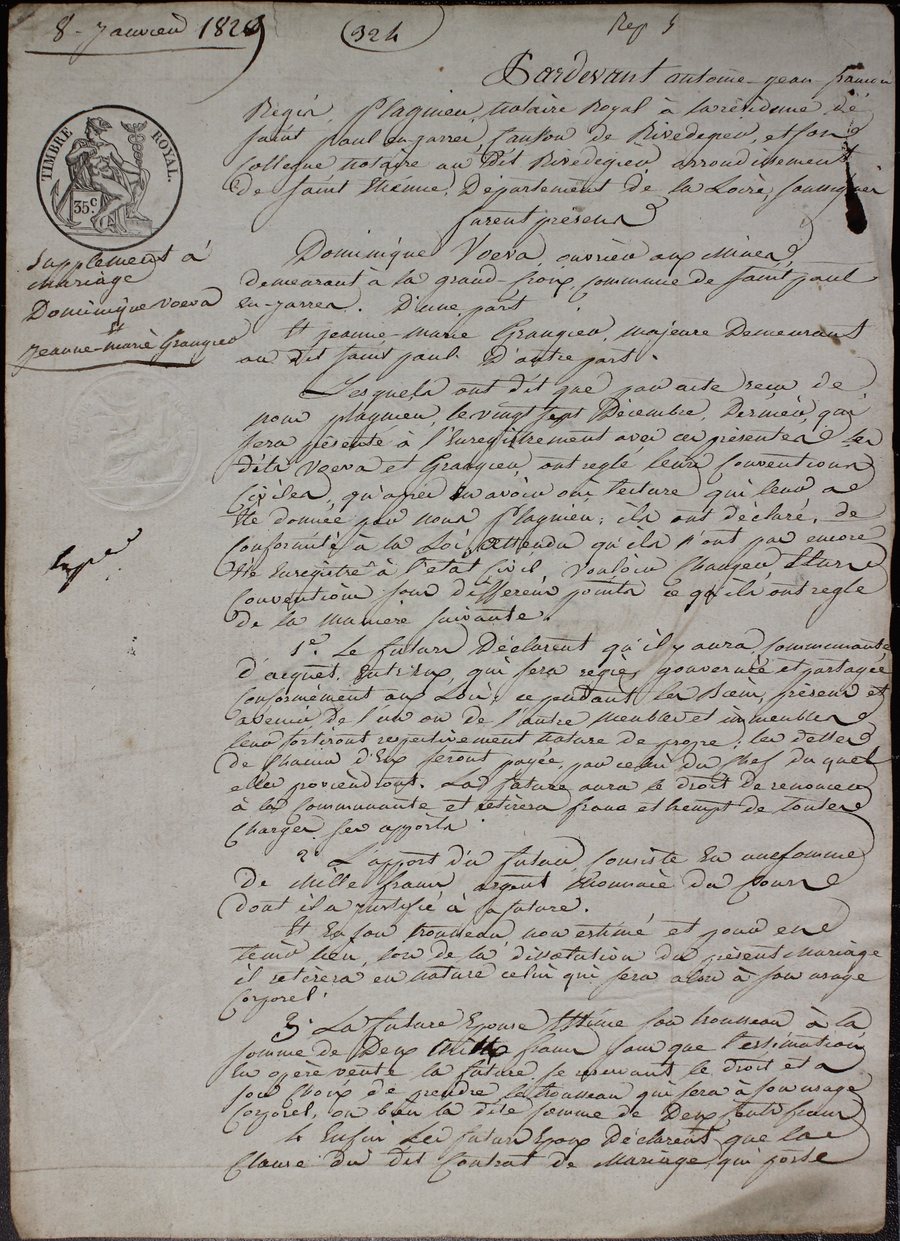 8 Janvier 1829
324
Rep 5
Pardevant antoine jean francois
Régis, Plagnieu, notaire Royal à la résidence de
saint paul en-jarrez, canton de Rivedegier, et son
Collegue notaire au dit Rivedegier arrondissement
de saint Etienne, Département de la Loire, soussignés
furent présens
TIMBRE ROYAL.
35 c
Supplement à
mariage
Dominique Voeva
et
Jeanne-marie Grangier
Dominique Voeva, ouvrier aux Mines,
demeurant à la grand-croix, commune de saint paul
en-jarrez. D'une part
Et jeanne-marie Grangier, majeure Demeurant
au dit saint paul. D'autre part.
Lesquels ont dit que par acte reçu de
nous plagnieu, le vingt sept Décembre, Dernier qui
sera présenté à l'Enregistrement avec ces présentes les
dits Voeva et Grangier, ont reglé leurs Conventions
Civiles, qu'après en avoir oui lecture qui leur a
été donnée par nous Plagnieu, ils ont déclaré, de
conformité à la Loi, attendu qu'ils n'ont pas encore
été Enregistré à l'état civil vouloir changer Leurs
Conventions sous différens points ce qu'ils ont reglé
de la maniere suivante.
1°. Le futurs Déclarent qu'il y aura communauté
d'acquet Entr'Eux, qui sera regie, gouvernée et partagée
conformément aux Lois, cependant les Biens présens et
avenir de l'un ou de l'autre meubles et immeubles
leur sortiront respectivement nature de propre; les dettes
de Chacun d'Eux seront payées, par celui du Chef du quel
elles proviendront. La future aura le droit de renoncer
à la Communauté et retirera franc et Exempt de toutes
Charges ses apports
2. L'apport du futur, consiste En une somme
De mille francs argent monnaie du Cours
Dont il a justifié à sa future.
Et En son trousseau non estimé et pour en
tenir lieu, lors de la dissolution du présent mariage
il retirera en nature celui qui sera alors à son usage
Corporel.
3. La future Epouse Estime son trousseau à la
somme de Deux francs sans que l'estimation
En opere vente la future se reservant le droit et a
son choix de prendre, le trousseau qui sera à son usage
Corporel, ou bien la dite somme de Deux Cents francs
4 Enfin Les futurs Epoux Déclarent, que la
Clause du dit Contrat de mariage, qui porte